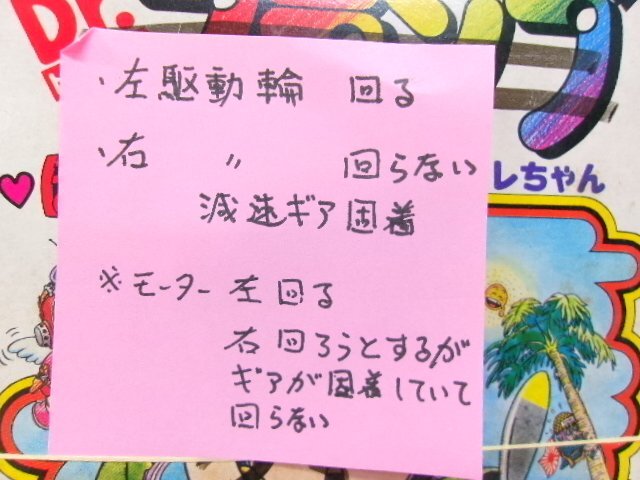 Dr.
・左駆動輪 回る
・右 〃 回らない
減速ギア固着
※モーター 左回る
右回ろうとするが
ギアが固着していて
回らない
レちゃん